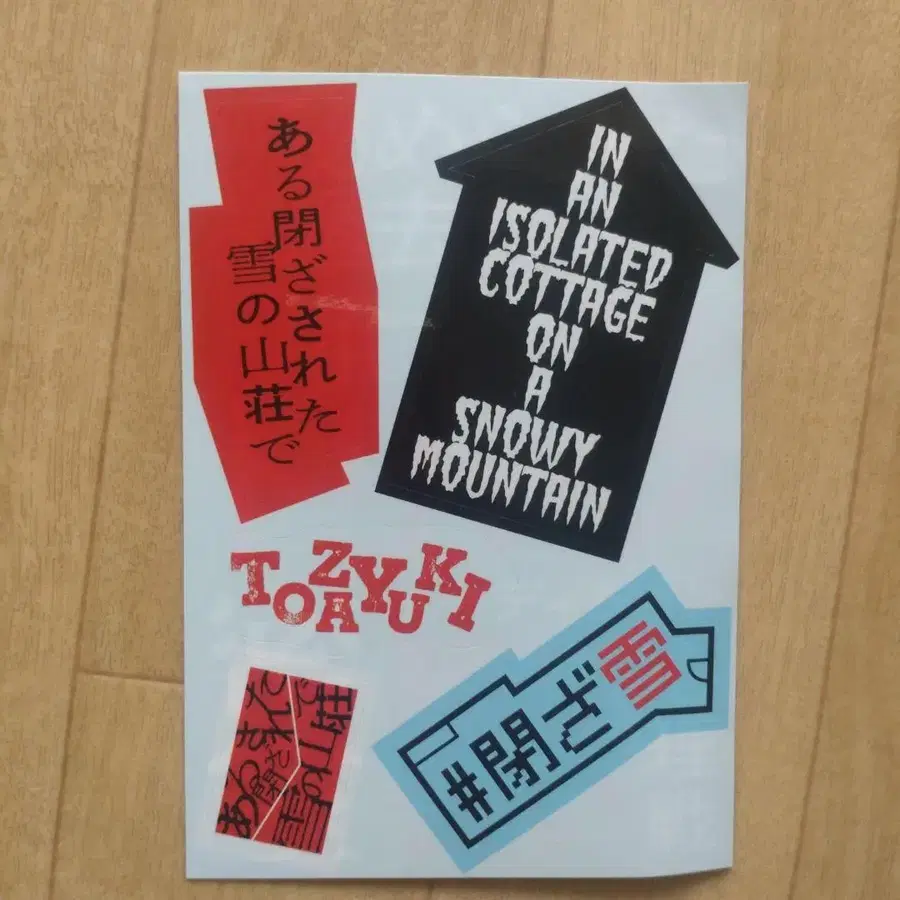 ある閉ざされた
雪の山荘で
IN
AN
ISOLATED
COTTAGE
ON
A
SNOWY
MOUNTAIN
TOZAYUKI
#閉ざ雪
ある閉ざされた
雪の山荘で